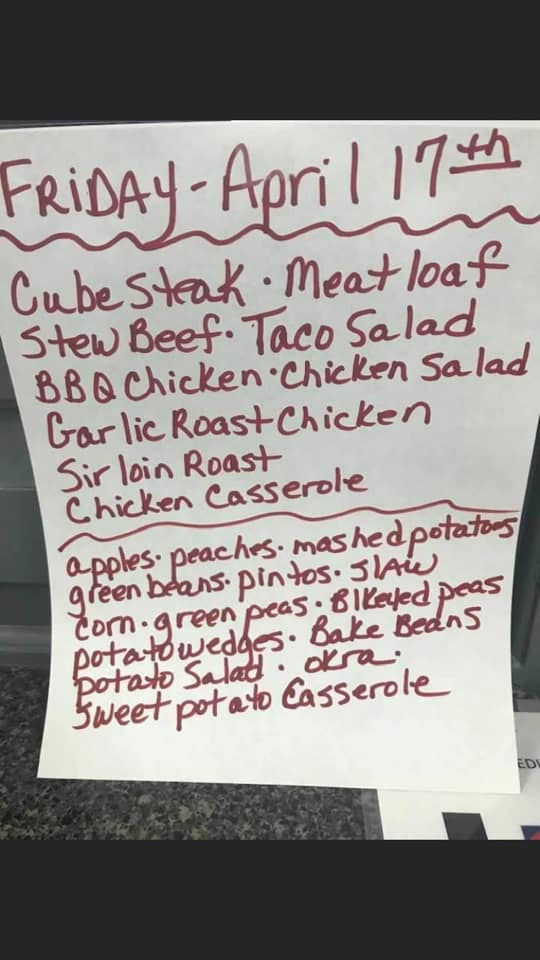 FRiDAy - April 17th
Cube Steak · Meatloaf
Stew Beef · Taco Salad
BBQ Chicken · Chicken Salad
Garlic Roast Chicken
Sirloin Roast
Chicken Casserole
apples · peaches · mashed potatoes
green beans · pintos · SlAw
Corn · green peas · BlKeyed peas
potato wedges · Bake Beans
potato Salad · okra ·
Sweet potato Casserole
EDI